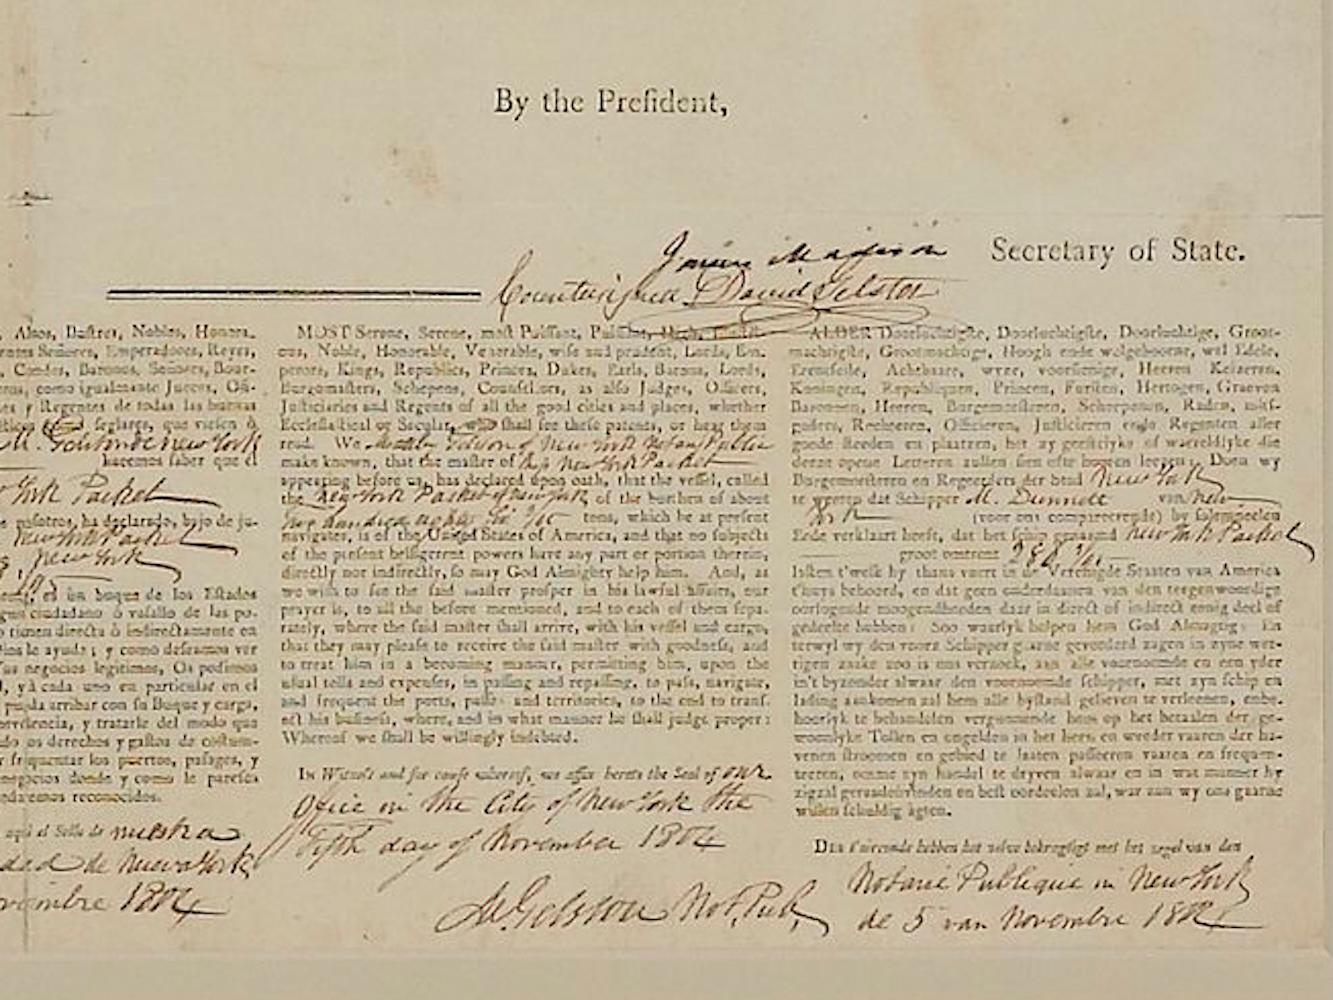 By the Preſident,
James Madison Secretary of State.
Counterſigned David Gelston
, Altos, Iluſtres, Nobles, Honora-
Señores, Emperadores, Reyes,
, Condes, Barones, Señores, Bour-
como igualmente Jueces, Ofi-
y Regentes de todas las buenas
ſeglares, que vieſen ò
M. Gelston de New York
hacemos ſaber que el
York Packet
noſotros, ha declarado, bajo de ju-
New York Packet
New York
es un buque de los Eſtados
ciudadano ò vaſallo de las po-
tienen directa ò indirectamente en
le ayude; y como deſeamos ver
negocios legitimos, Os pedimos
, y à cada uno en particular en el
pueda arribar con ſu Buque y carga,
y tratarle del modo que
los derechos y gaſtos de coſtum-
frequentar los puertos, paſages, y
negocios donde y como le pareſca
reconocidos.
aqui el Sello de nueſtra
de Nueva York
1804
MOST Serene, Serene, moſt Puiſſant, Puiſſant, High, Illuſtri-
ous, Noble, Honorable, Venerable, wiſe and prudent, Lords, Em-
perors, Kings, Republics, Princes, Dukes, Earls, Barons, Lords,
Burgomaſters, Schepens, Counſellors, as alſo Judges, Officers,
Juſticiaries and Regents of all the good cities and places, whether
Eccleſiaſtical or Secular, who ſhall ſee theſe patents, or hear them
read. We Gelston of New York Notary Public
make known, that the maſter of Ship New York Packet
appearing before us, has declared upon oath, that the veſſel, called
the New York Packet of New York of the burthen of about
two hundred eighty Six tons, which he at preſent
navigates, is of the United States of America, and that no ſubjects
of the preſent belligerent powers have any part or portion therein,
directly nor indirectly, ſo may God Almighty help him. And, as
we wiſh to ſee the ſaid maſter proſper in his lawful affairs, our
prayer is, to all the before mentioned, and to each of them ſepa-
rately, where the ſaid maſter ſhall arrive, with his veſſel and cargo,
that they may pleaſe to receive the ſaid maſter with goodneſs, and
to treat him in a becoming manner, permitting him, upon the
uſual tolls and expenſes, in paſſing and repaſſing, to paſs, navigate,
and frequent the ports, paſſes and territories, to the end to tranſ-
act his buſineſs, where, and in what manner he ſhall judge proper:
Whereof we ſhall be willingly indebted.
In Witneſs and for cauſe whereof, we affix hereto the Seal of our
Office in the City of New York the
Fifth day of November 1804
Gelston Not. Pub.
ALDER Doorluchtigſte, Doorluchtigſte, Doorluchtige, Groot-
machtigſte, Grootmachtige, Hoogh ende welgeboorne, wel Edele,
Erentfeſte, Achtbaare, wyze, voorſienige, Heeren Keizeren,
Koningen, Republiquen, Princen, Furſten, Hertogen, Graeven
Baronnen, Heeren, Burgemeeſteren, Scheepenen, Raden, mits-
gaders, Rechteren, Officieren, Juſticieren ende Regenten aller
goede ſteeden en plaatzen, het zy geeſtelyke of waereldlyke die
deeze opene Letteren zullen ſien ofte hooren leezen; Doen wy
Burgemeeſteren en Regeerders der ſtad New York
te weeten dat Schipper M. Dunnett van New
York (voor ons comparerende) by ſolemneelen
Eede verklaart heeft, dat het ſchip genaamd New York Packet
groot omtrent 286
laſten t'welk hy thans voert in de Verenigde Staaten van America
t'huys behoord, en dat geen onderdaanen van den tegenwoordige
oorlogende moogendheeden daar in direct of indirect eenig deel of
gedeelte hebben: Soo waarlyk helpen hem God Almagtig: En
terwyl wy den voorz Schipper gaarne gevorderd zagen in zyne wet-
tigen zaake zoo is ons verzoek, aan alle voornoemde en een yder
in't byzonder alwaar den voornoemde ſchipper, met zyn ſchip en
lading aankomen zal hem alle byſtand gelieven te verleenen, ende
hoorlyk te behandelen vergunnende hem op het betaalen der ge-
woonlyke Tollen en ongelden in het heen en weeder vaaren der ha-
venen ſtroomen en gebied te laaten paſſeeren vaaren en frequen-
teeren, omme zyn handel te dryven alwaar en in wat manier hy
zigzal geraadenvinden en beſt oordeelen zal, war aan wy ons gaarne
willen ſchuldig agten.
hebben het zelve bekragtigt met het zegel van den
Notarie Publique in New York
de 5 van November 1804